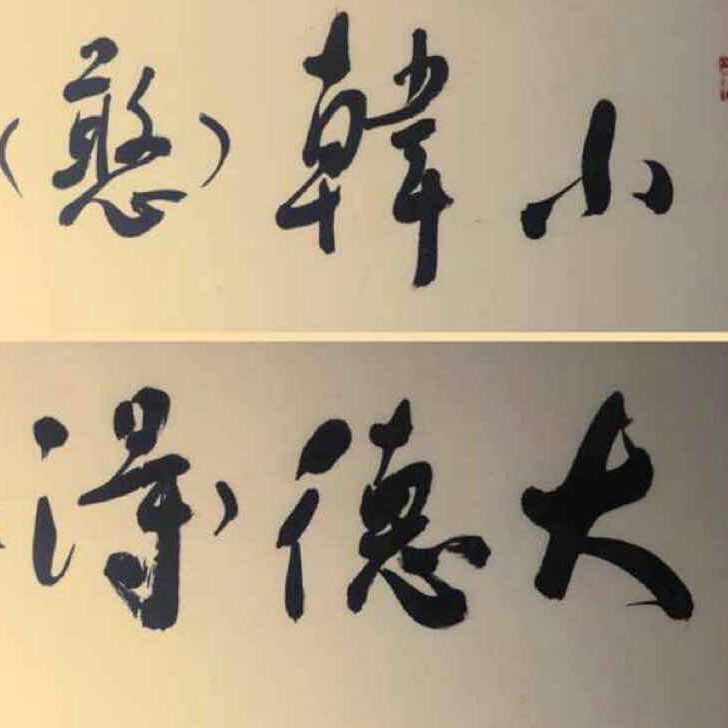 小韓（憨）
大德（得）